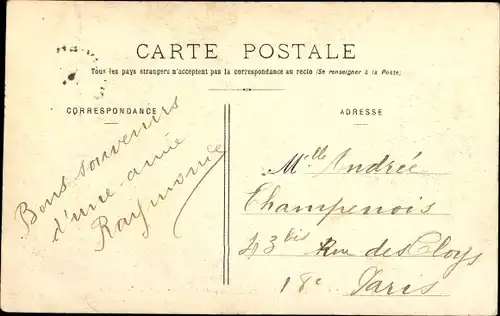 CARTE POSTALE
Tous les pays étrangers n'acceptent pas la correspondance au recto (Se renseigner à la Poste)
CORRESPONDANCE
ADRESSE
Bons souvenirs
d'une amie
Raymonde
Mlle Andrée
Champenois
43 bis Rue des Cloys
18e Paris